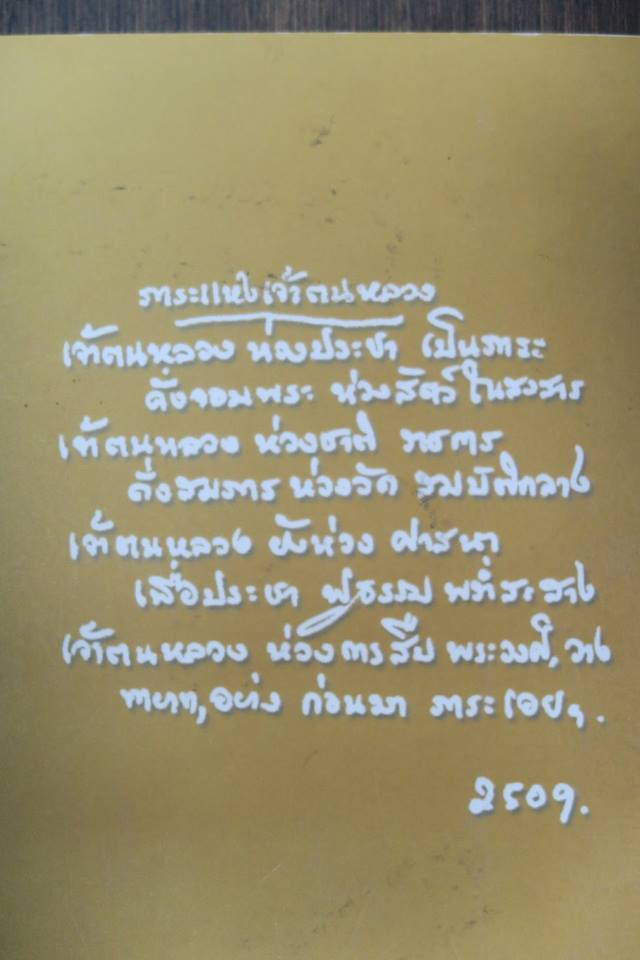 ภาระแห่งเจ้าตนหลวง
เจ้าตนหลวง ห่วงประชา เป็นภาระ
ดั่งจอมพระ ห่วงสัตว์ ในสงสาร
เจ้าตนหลวง ห่วงชาติ ราชการ
ดั่งสมภาร ห่วงวัด สมบัติกลาง
เจ้าตนหลวง ยังห่วง ศาสนา
เสื่อประชา ธรรม สะสาง
เจ้าตนหลวง ห่วงการสืบ พระวงศ์, วาง
อย่าง ก่อนมา ภาระเอยฯ.
2509.